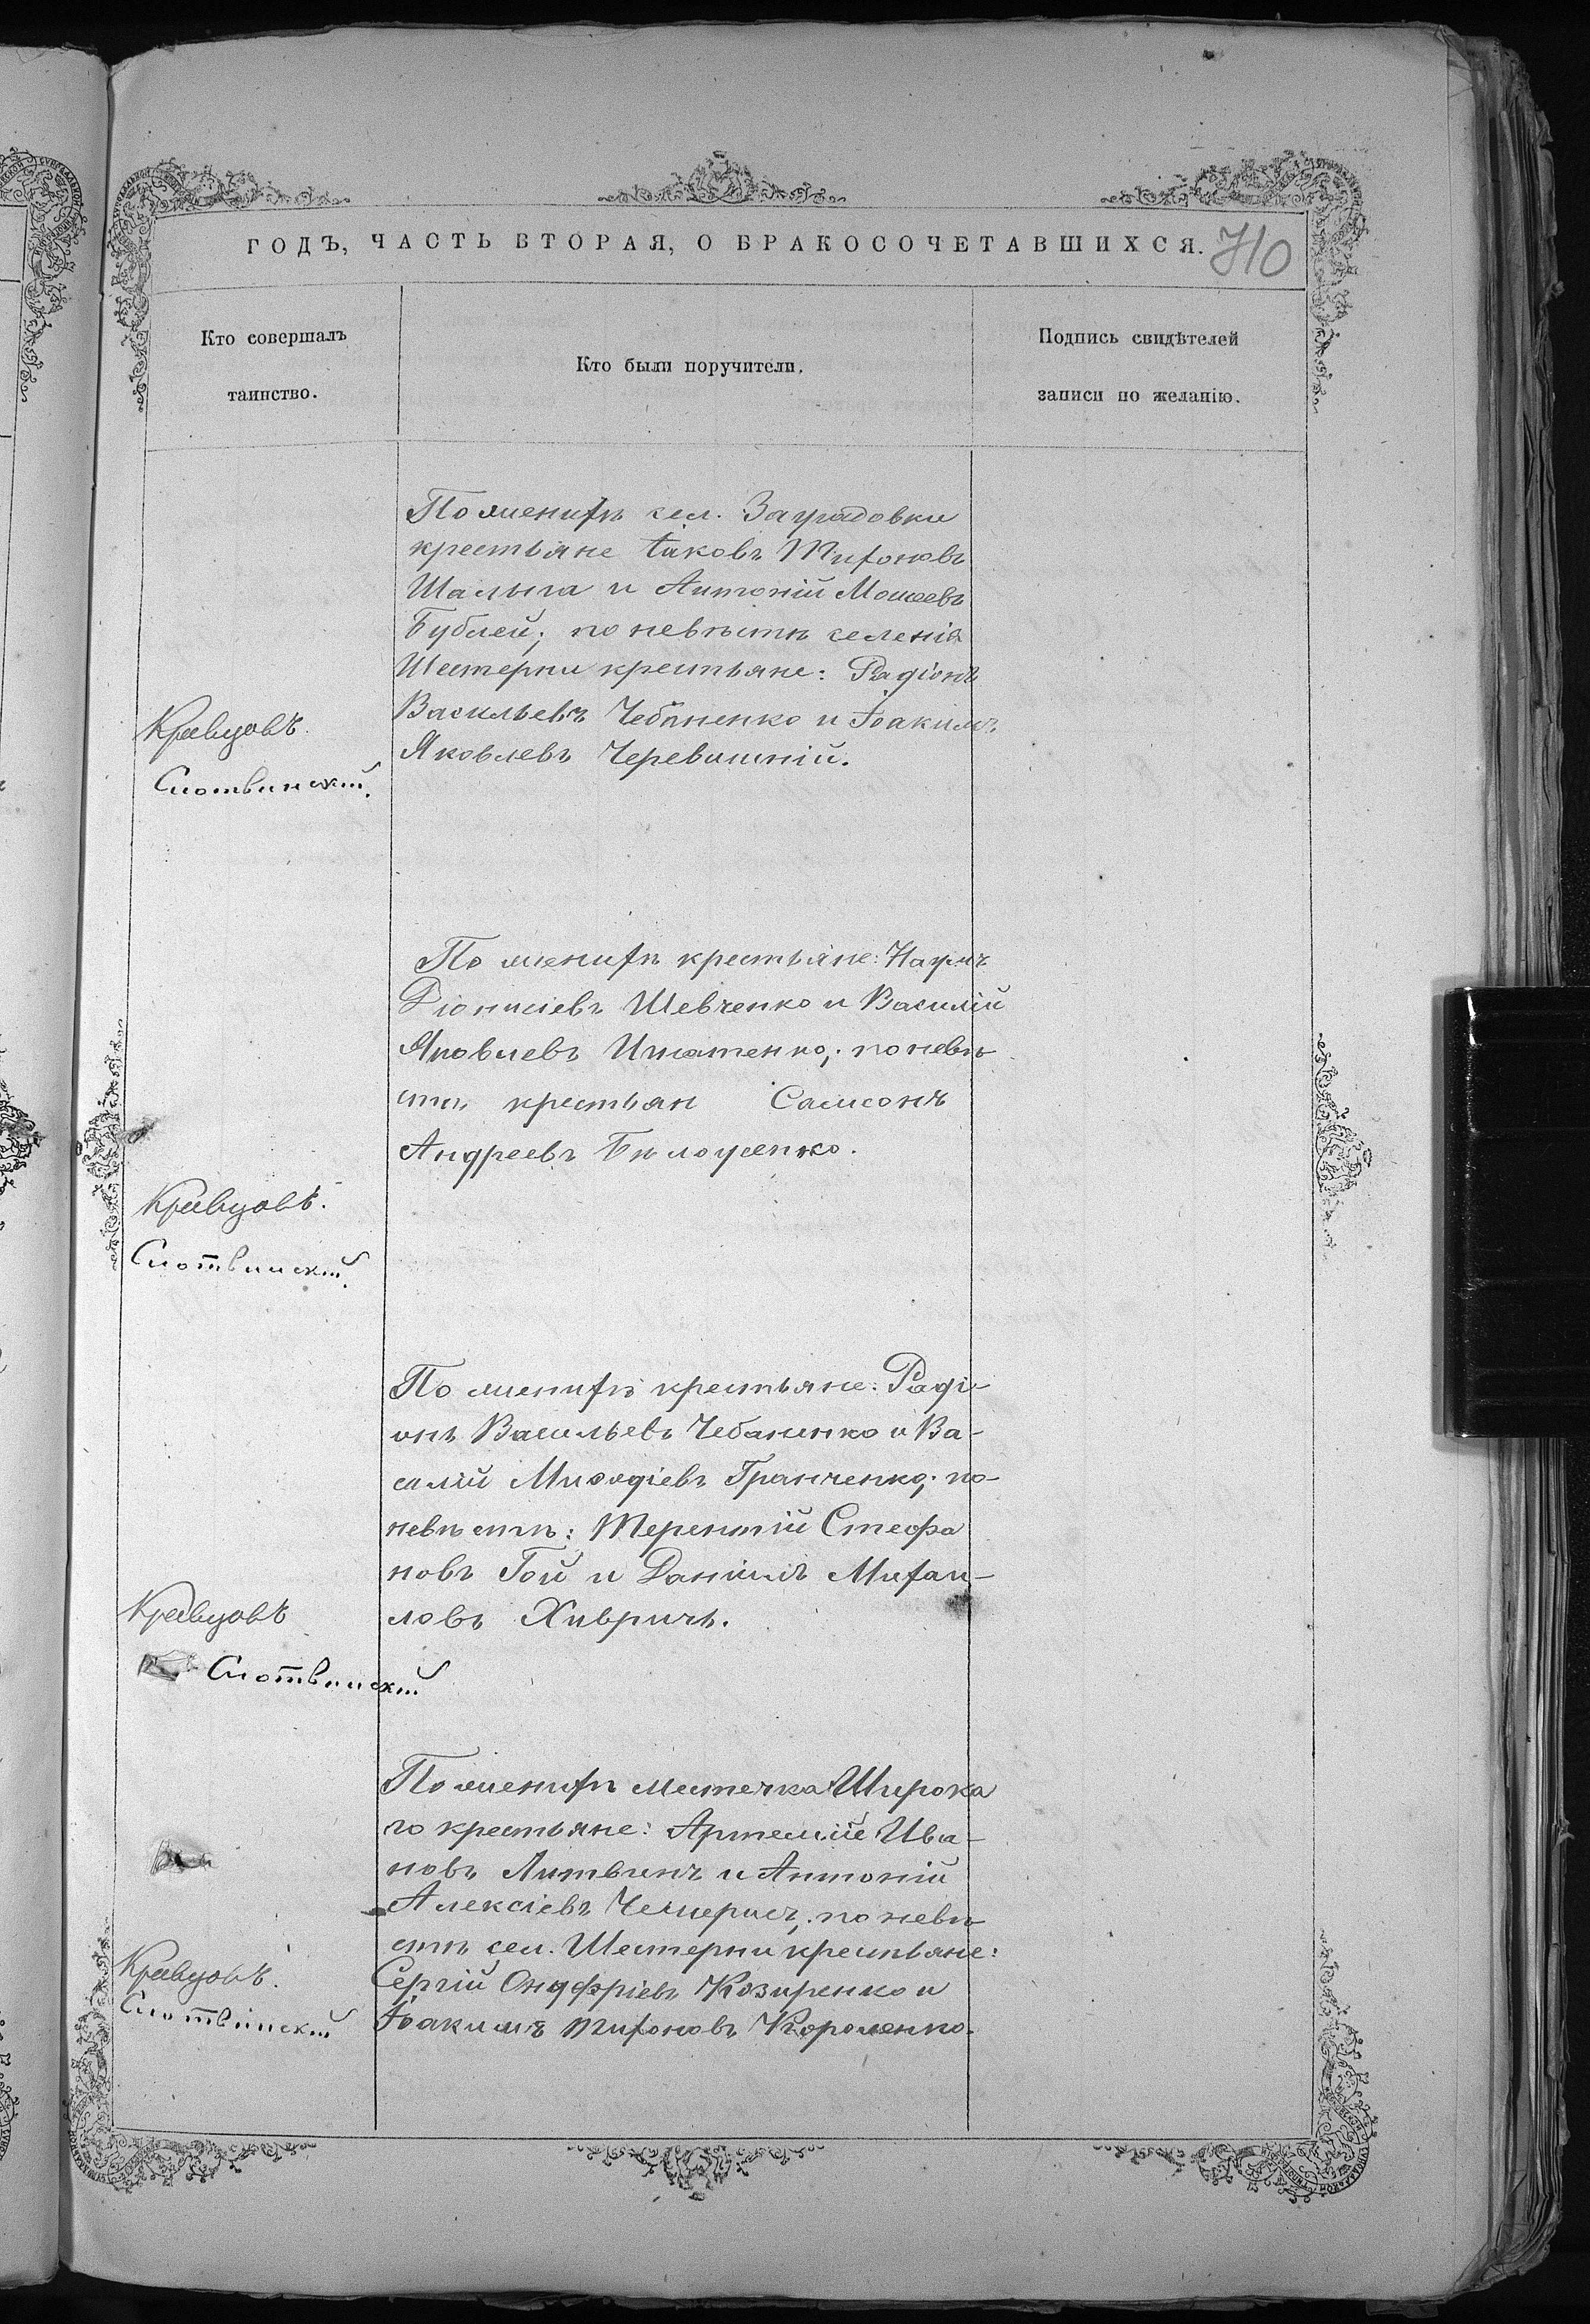 ГОДЪ, ЧАСТЬ ВТОРАЯ, О БРАКОСОЧЕТАВШИХСЯ. 710
Кто совершалъ
таинство.
Кто были поручители.
Подпись свидѣтелей
записи по желанію.
По женихѣ сел. Заградовки
крестьяне Іаковъ Тихоновъ
Шалыга и Антоній Моисеевъ
Бублей; по невѣстѣ селенія
Шестерни крестьяне: Радіонъ
Васильевъ Чебаненко и Іоакимъ
Яковлевъ Черевишній.
Кравцовъ.
Слотвинскій.
По женихѣ крестьяне: Наумъ
Діонисіевъ Шевченко и Василій
Яковлевъ Игнатенко; по невѣ
стѣ крестьян Самсонъ
Андреевъ Бѣлоусенко.
Кравцовъ.
Слотвинскій.
По женихѣ крестьяне: Раді-
онъ Васильевъ Чебаненко и Ва-
силій Миѳодіевъ Гранченко; по-
невѣстѣ: Терентій Стефа
новъ Гой и Даніилъ Михаи-
ловъ Хивричъ.
Кравцовъ
Слотвинскій
По женихѣ мѣстечка Широка
го крестьяне: Артемій Ива-
новъ Литвинъ и Антоній
Алексіевъ Чемерисъ; по невѣ
стѣ сел. Шестерни крестьяне:
Сергій Онуфріевъ Козиренко и
Іоакимъ Тихоновъ Короленко.
Кравцовъ.
Слотвинскій